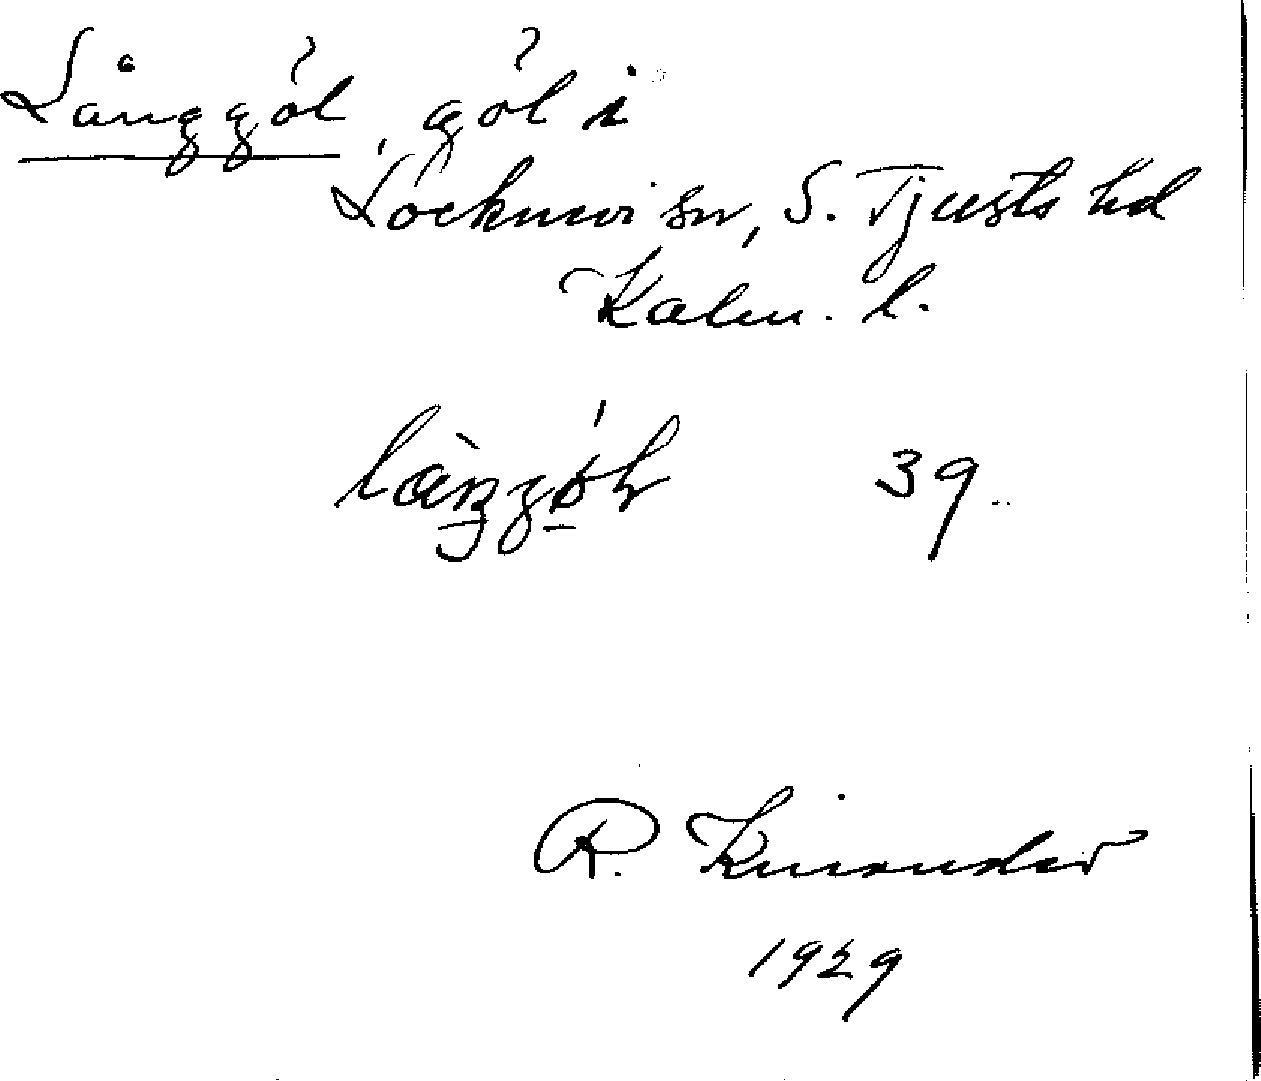 Långgöl, göl i
Locknevi sn, S. Tjusts hd
Kalm. l.
39
R. Kinander
1929